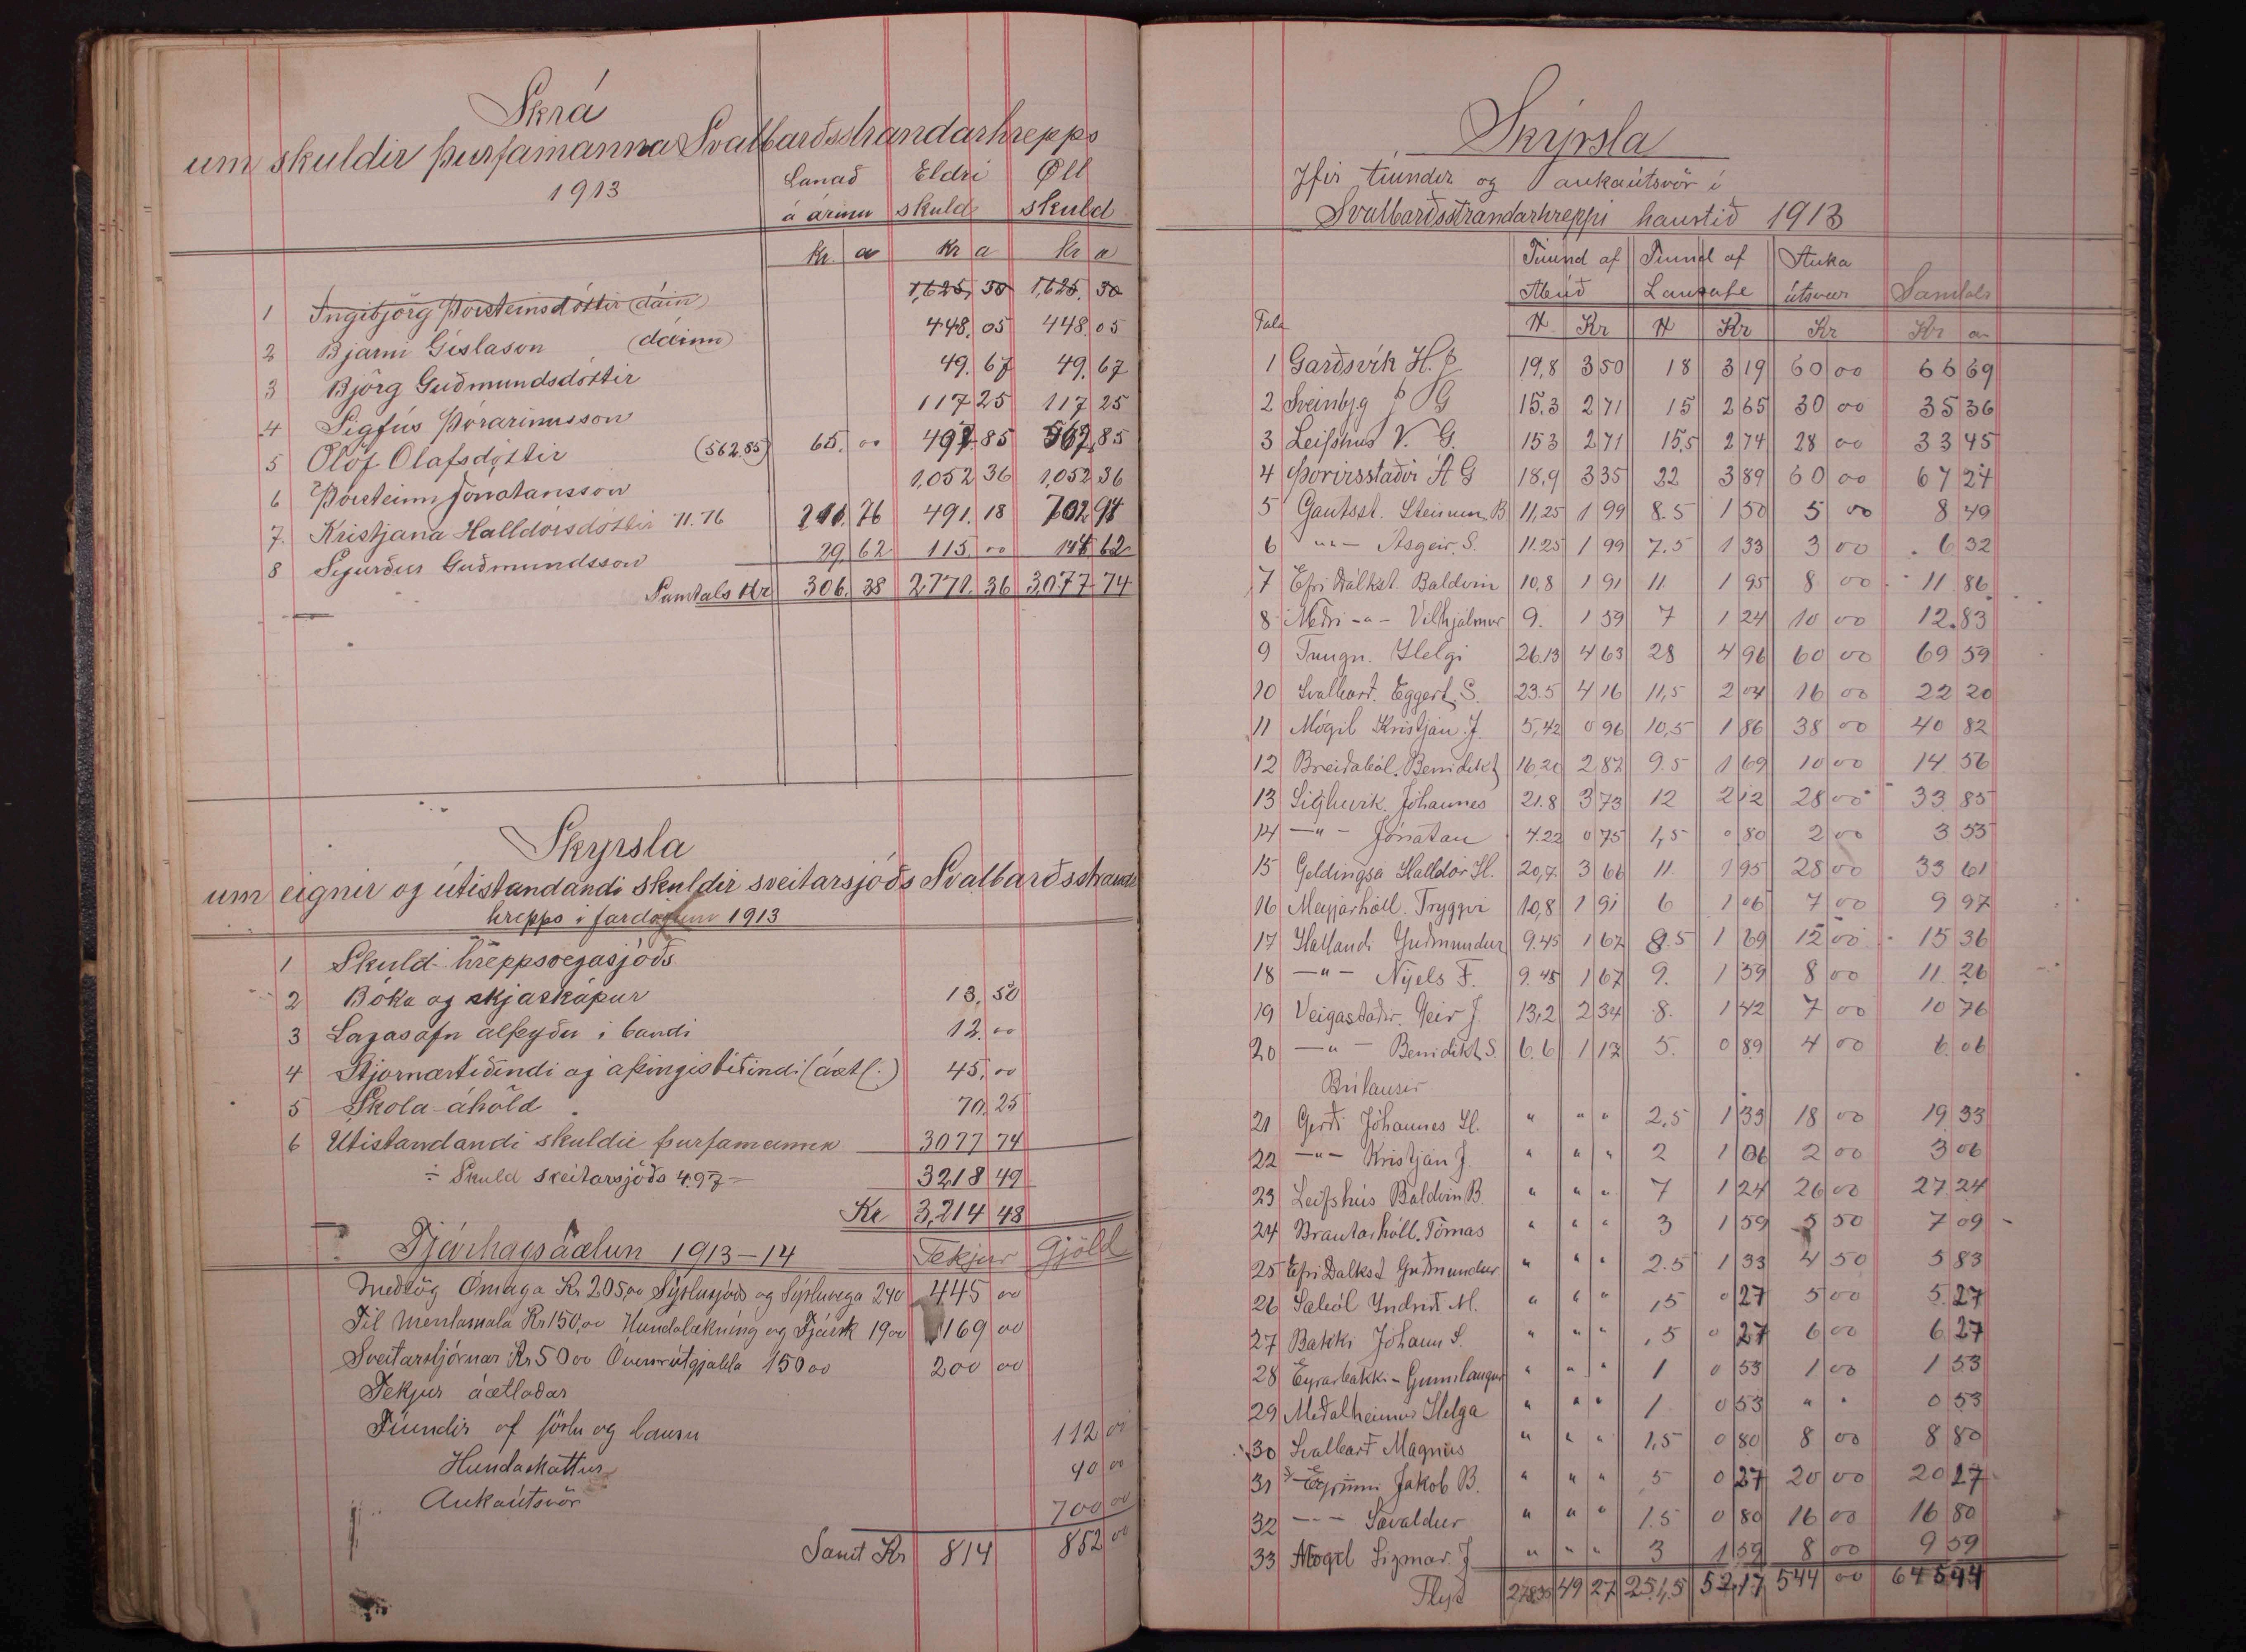 Skrá
um skuldir þurfamanna Svalbarðsstrandarhrepps
1913
Lanað á árinu Eldri skuld Öll skuld
Kr. a Kr a Kr a
1 Ingibjörg Þorsteinsdóttir (dáin) 1,625,30 1,625,30
2 Bjarni Gíslason (dáinn) 448,05 448,05
3 Björg Guðmundsdóttir 49,67 49,67
4 Sigfús Þórarinsson 117 25 117 25
5 Ólöf Ólafsdóttir (562.85) 65,00 497.85 562,85
6 Þorsteinn Jónatansson 1,052 36 1,052 36
7. Kristjana Halldórsdóttir 11.76 211.76 491.18 702 94
8 Sigurður Guðmundsson 29,62 115 00 144 62
Samtals Kr 306.38 2771.36 3,077 74
Skyrsla
um eignir og útistandandi skuldir sveitarsjóðs Svalbarðsstrand
hrepps í fardögum 1913
1 Skuld hreppsvegasjóðs
2 Bóka og skjaskápur 13,50
3 Lagasafn alþyðu í bandi 12,00
4 Stjornartíðindi og alþingistíðindi (áætl.) 45,00
5 Skola-áhöld 70,25
6 Útistandandi skuldir þurfamanna 3077 74
3218 49
÷ Skuld sveitarsjóðs 4.97
Kr 3,214 48
Fjárhagsáælun 1913-14 Tekjur Gjöld
Meðlög Ómaga Kr 205,00 Sýslusjóðs og Sýsluvega 240 445 00
Til Mentamala Kr 150,00 Hundalækning og Fjársk 19 00 169 00
Sveitarstjórnar Kr 50 00 Óvissrútgjalda 150 00 200 00
Tekjur áætlaðar
Tíundir of förlu og lausu 112 00
Hundaskattur 40 00
Aukaútsvör 700 00
Samt Kr 814 852 00
Skýrsla
Yfir tíundir og aukaútsvör í
Svalbarðsstrandarhreppi haustið 1913
Tíund af Ábúð Tíund af Lausafe Auka útsvar Samtals
Tala H Kr H Kr Kr Kr a
1 Garðsvík H. Þ 19,8 3 50 18 3 19 60 00 66 69
2 Sveinbj.g Þ G 15.3 2 71 15 2 65 30 00 35 36
3 Leifshús V. G. 15 3 2 71 15,5 2 74 28 00 33 45
4 Þorirsstaðir A G 18,9 3 35 22 3 89 60 00 67 24
5 Gautsst. Steinun B 11,25 1 99 8.5 1 50 5 00 8 49
6 -"- Ásgeir. S. 11.25 1 99 7.5 1 33 3 00 6 32
7 Efri Dálkst. Baldvin 10,8 1 91 11 1 95 8 00 11 86
8 Neðri -"- Vilhjálmur 9. 1 59 7 1 24 10 00 12.83
9 Tungu. Helgi 26.13 4 63 28 4 96 60 00 69 59
10 Svalbarð. Eggert S. 23.5 4 16 11,5 2 04 16 00 22 20
11 Mógil Kristján J. 5,42 0 96 10,5 1 86 38 00 40 82
12 Breiðaból. Benidikt 16,20 2 87 9.5 1 69 10 00 14 56
13 Sigluvík. Jóhannes 21.8 3 73 12 2 12 28 00 33 85
14 -"- Jónatan 4.22 0 75 1,5 0 80 2 00 3 55
15 Geldingsá Halldór H. 20,7 3 66 11. 1 95 28 00 33 61
16 Meyjarhóll. Tryggvi 10,8 1 91 6 1 06 7 00 9 97
17 Halland. Guðmundur 9.45 1 67 9.5 1 69 12 00 15 36
18 -"- Nýels F. 9.45 1 67 9. 1 59 8 00 11 26
19 Veigastaðir. Geir J. 13,2 2 34 8. 1 42 7 00 10 76
20 -"- Benidikt S. 6.6 1 17 5. 0 89 4 00 6.06
Búlausir
21 Gerði Jóhannes H. " " " 2,5 1 33 18 00 19 33
22 -"- Kristján J. " " " 2 1 06 2 00 3 06
23 Leifshús Baldvin B. " " " 7 1 24 26 00 27 24
24 Brautarhóll. Tómas " " " 3 1 59 5 50 7 09
25 Efri Dalkst Guðmundur " " " 2.5 1 33 4 50 5 83
26 Saból Indrið M. " " " ,5 0 27 5 00 5.27
27 Bakki Jóhann S. " " " ,5 0 27 6 00 6 27
28 Eyrarbakki - Gunnlaugur " " " 1 0 53 1 00 1 53
29 Meðalheimur Helga " " " 1 0 53 " " 0 53
30 Svalbarð Magnús " " " 1,5 0 80 8 00 8 80
31 Jakob B. " " " 5 0 27 20 00 20 27
32 --- Sævaldur " " " 1.5 0 80 16 00 16 80
33 Mógil Sigmar. J " " " 3 1 59 8 00 9 59
Flyt 278,35 49 27 251,5 52,17 544 00 645 44